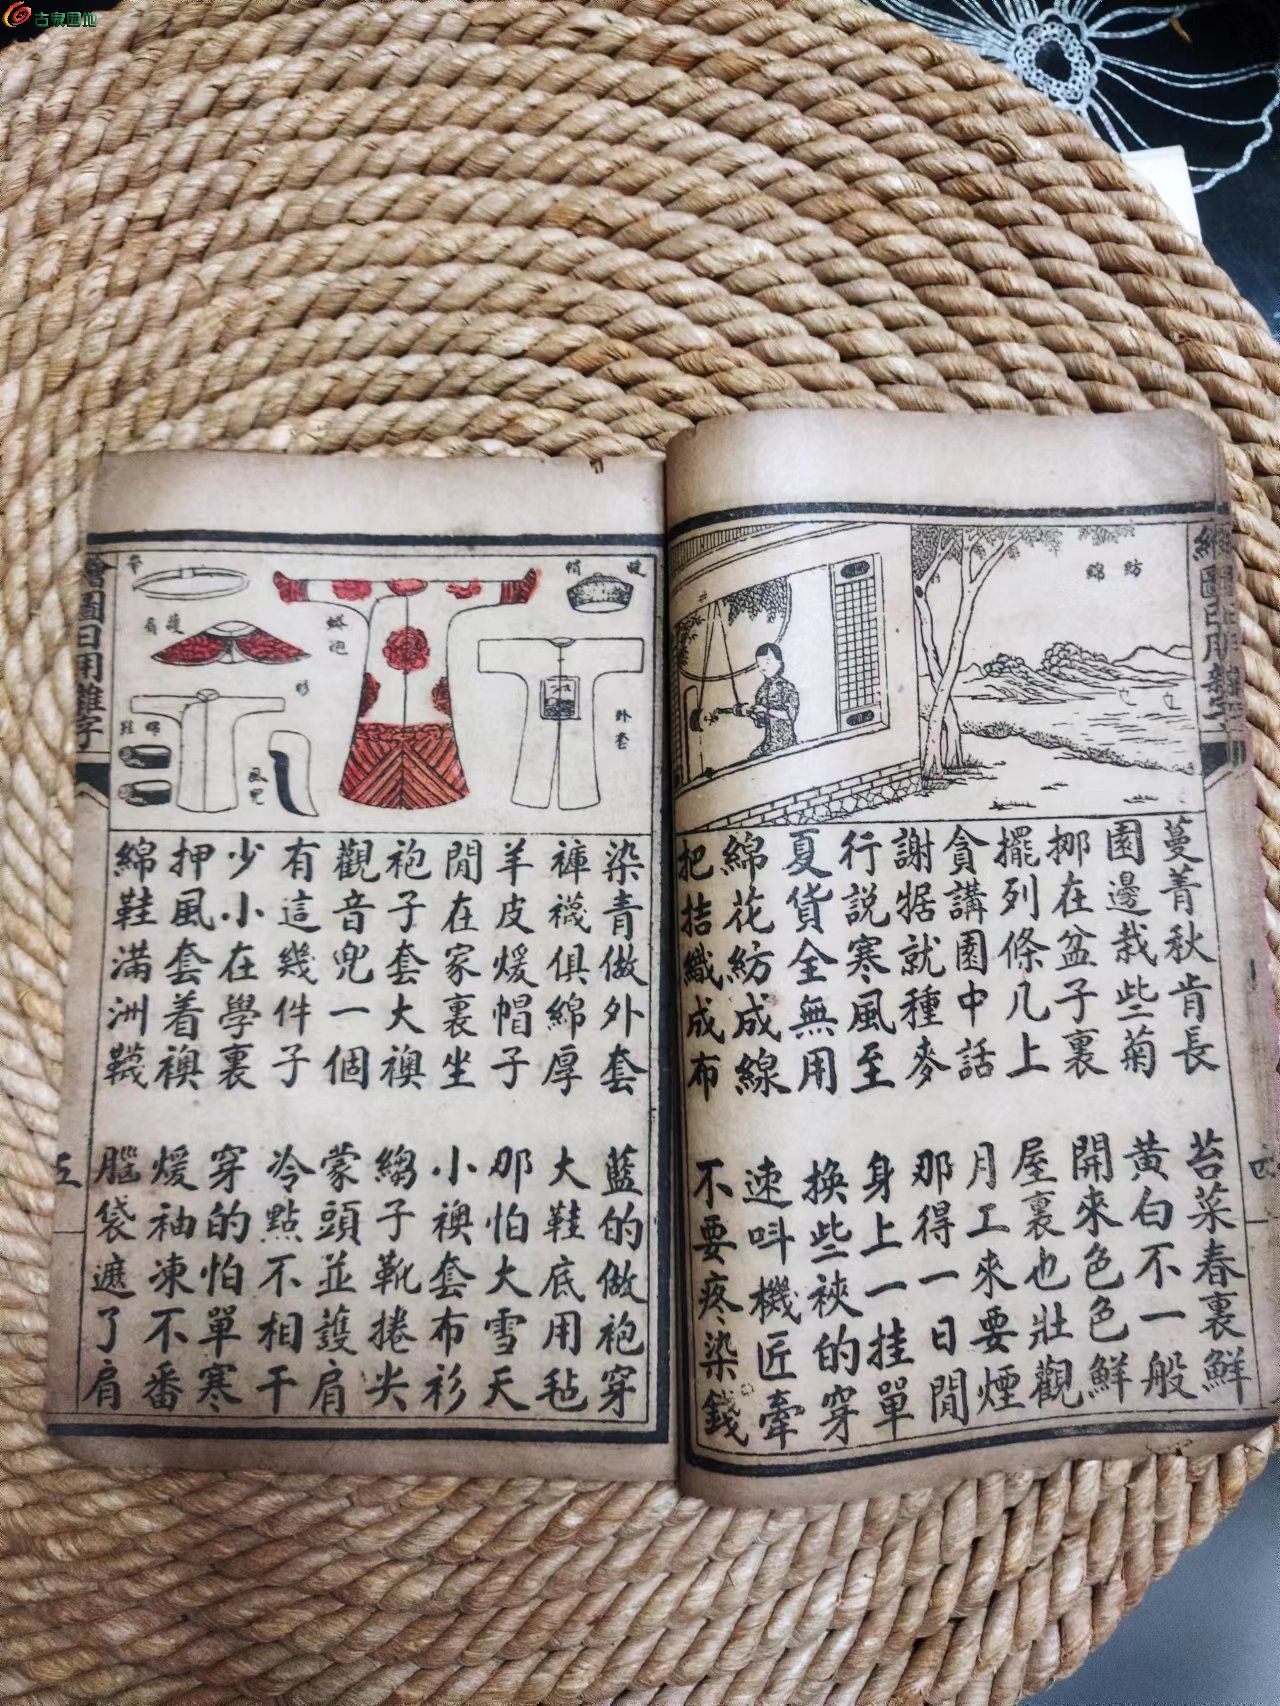 古泉园地
紡
綿
蔓菁秋肯長
苔菜春裏鮮
園邊栽些菊
黄白不一般
挪在盆子裏
開來色色鮮
擺列條几上
屋裏也壯觀
貪講園中話
月工來要煙
謝㨿就種麥
那得一日閒
行説寒風至
身上一挂單
夏貨全無用
換些裌的穿
綿花紡成線
速呌機匠牽
把拮織成布
不要疼染錢
四
煖帽
外套
蟒袍
帶
護肩
衫
綿鞋
風兜
染青做外套
藍的做袍穿
褲襪俱綿厚
大鞋底用毡
羊皮煖帽子
那怕大雪天
閒在家裏坐
小襖套布衫
袍子套大襖
縐子靴捲尖
觀音兜一個
蒙頭並護肩
有這幾件子
冷點不相干
少小在學裏
穿的怕單寒
押風套着襖
煖袖凍不番
綿鞋滿洲襪
腦袋遮了肩
繪圖日用雜字
五